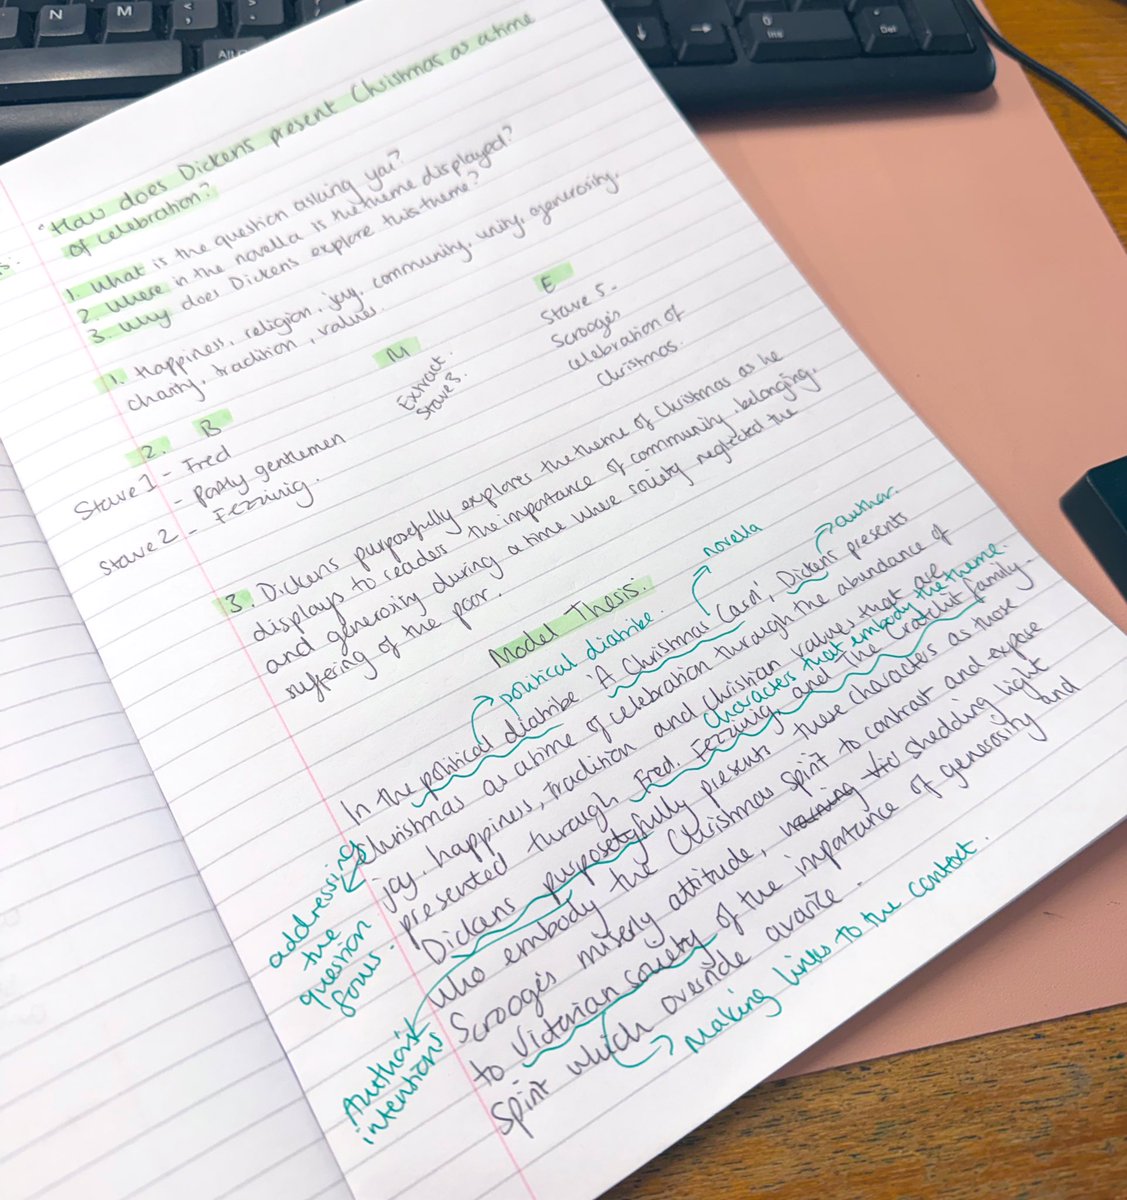 "How does Dickens present Christmas as a time
of celebration?"
1. What is the question asking you?
2. Where in the novella is the theme displayed?
3. Why does Dickens explore this theme?
1. Happiness, religion, joy, community, unity, generosity,
charity, tradition, values.
2. B M E
Stave 1 - Fred
- Portly gentlemen
Stave 2 - Fezziwig.
Extract.
Stave 3.
Stave 5 -
Scrooge's
celebration of
Christmas.
3. Dickens purposefully explores the theme of Christmas as he
displays to readers the importance of community, belonging,
and generosity during a time where society neglected the
suffering of the poor.
Model Thesis:
political diatribe.
novella
author.
In the political diatribe 'A Christmas Carol', Dickens presents
Christmas as a time of celebration through the abundance of
joy, happiness, tradition and Christian values that are
characters that embody the theme.
presented through Fred, Fezziwig, and the Cratchit family.
Dickens purposefully presents these characters as those
who embody the Christmas spirit to contrast and expose
Scrooge's miserly attitude, shedding light
to Victorian society of the importance of generosity and
spirit which override avarice.
addressing
the
question
focus.
Author's
intentions
Making links to the context.
N
M
Alt
0
Ins
Del